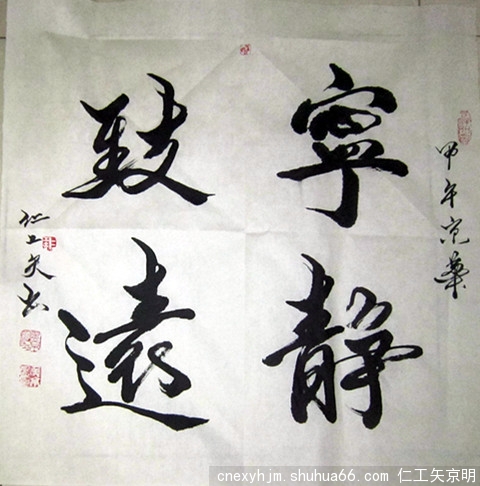 甲午京华
寧靜
致遠
仁工矢书
cnexyhjm.shuhua66.com 仁工矢京明